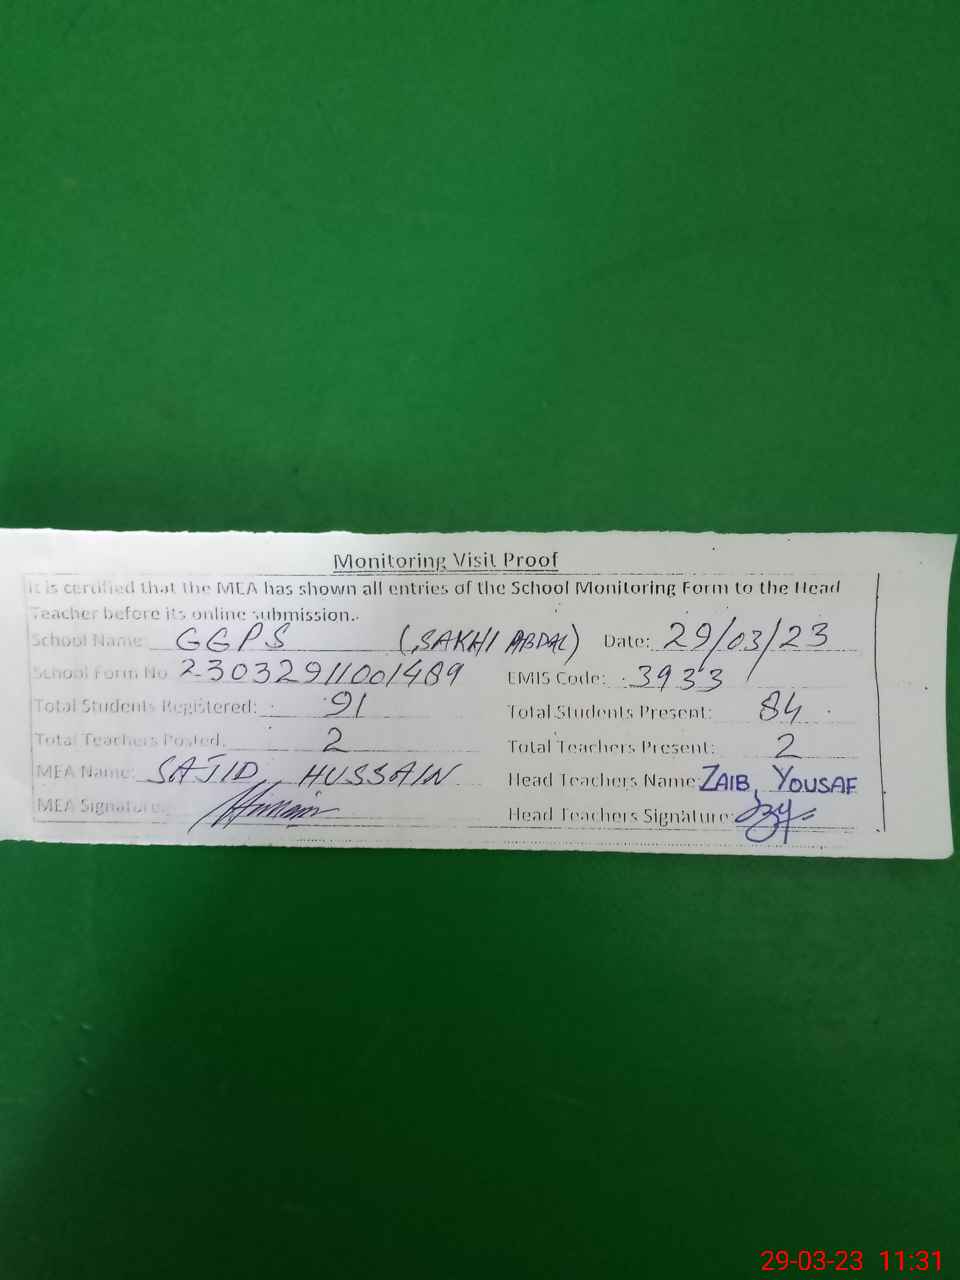 Monitoring Visit Proof
It is certified that the MEA has shown all entries of the School Monitoring Form to the Head
Teacher before its online submission.
School Name: GGPS (SAKHI ABDAL) Date: 29/03/23
School Form No 23032911001489 EMIS Code: 3933
Total Students Registered: 91 Total Students Present: 84
Total Teachers Posted: 2 Total Teachers Present: 2
MEA Name: SAJID HUSSAIN Head Teachers Name: ZAIB YOUSAF
MEA Signature: Head Teachers Signature:
29-03-23 11:31